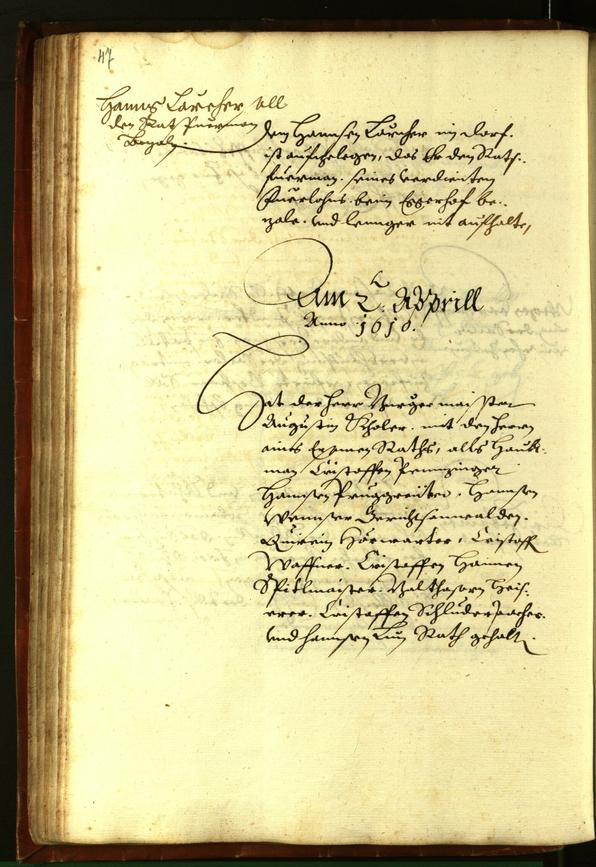 47
Hanns Larcher soll
den Stat Fuerman
Bezaln.
Dem Hannsen Larcher im Dorf.
ist auferlegen, das Er den Stat=
fuerman. seines verdienten
Fuerlohns beim Eggerhof be=
zale. und lennger nit aufhalte,
Am 2. Apprill
Anno 1610.
Hat der Herr Burgermaister
Augustin Scholer. mit den Herrn
aines Ersamen Raths, alls Haubt=
man Cristoffen Pennzinger
Hannsen Pruggreiter. Hannsen
Gerichtsanwalden.
Quirein Hörwarter, Cristoff
Waffner. Cristoffen Hainen
Spitlmaister. Balthasarn
Cristoffen Schluderpacher.
und Hannsen Rath gehalt.